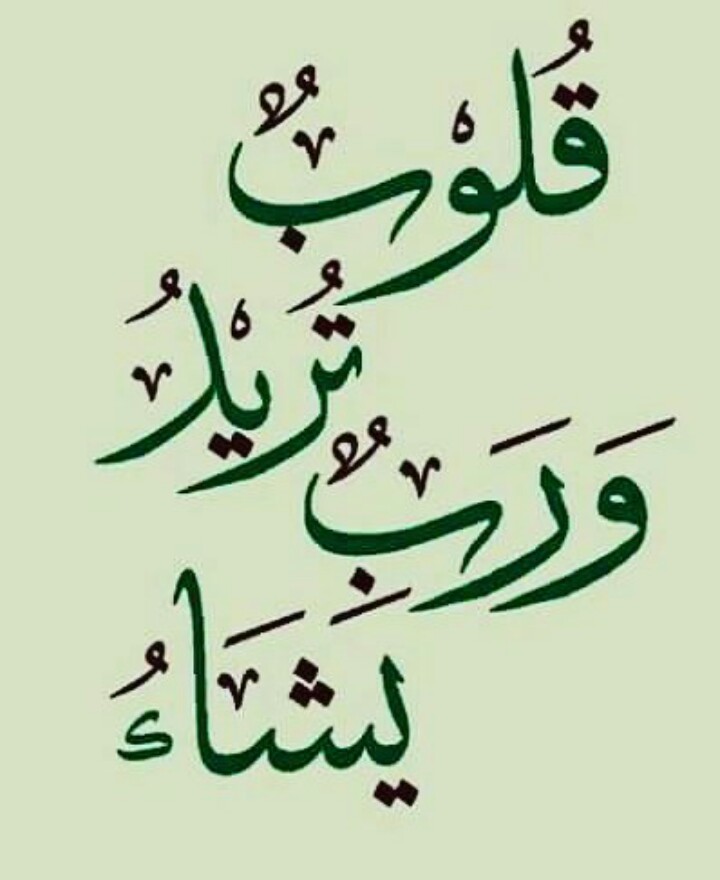 قُلُوْبٌ
تُرِيْدُ
وَرَبٌ
يَشَاءُ